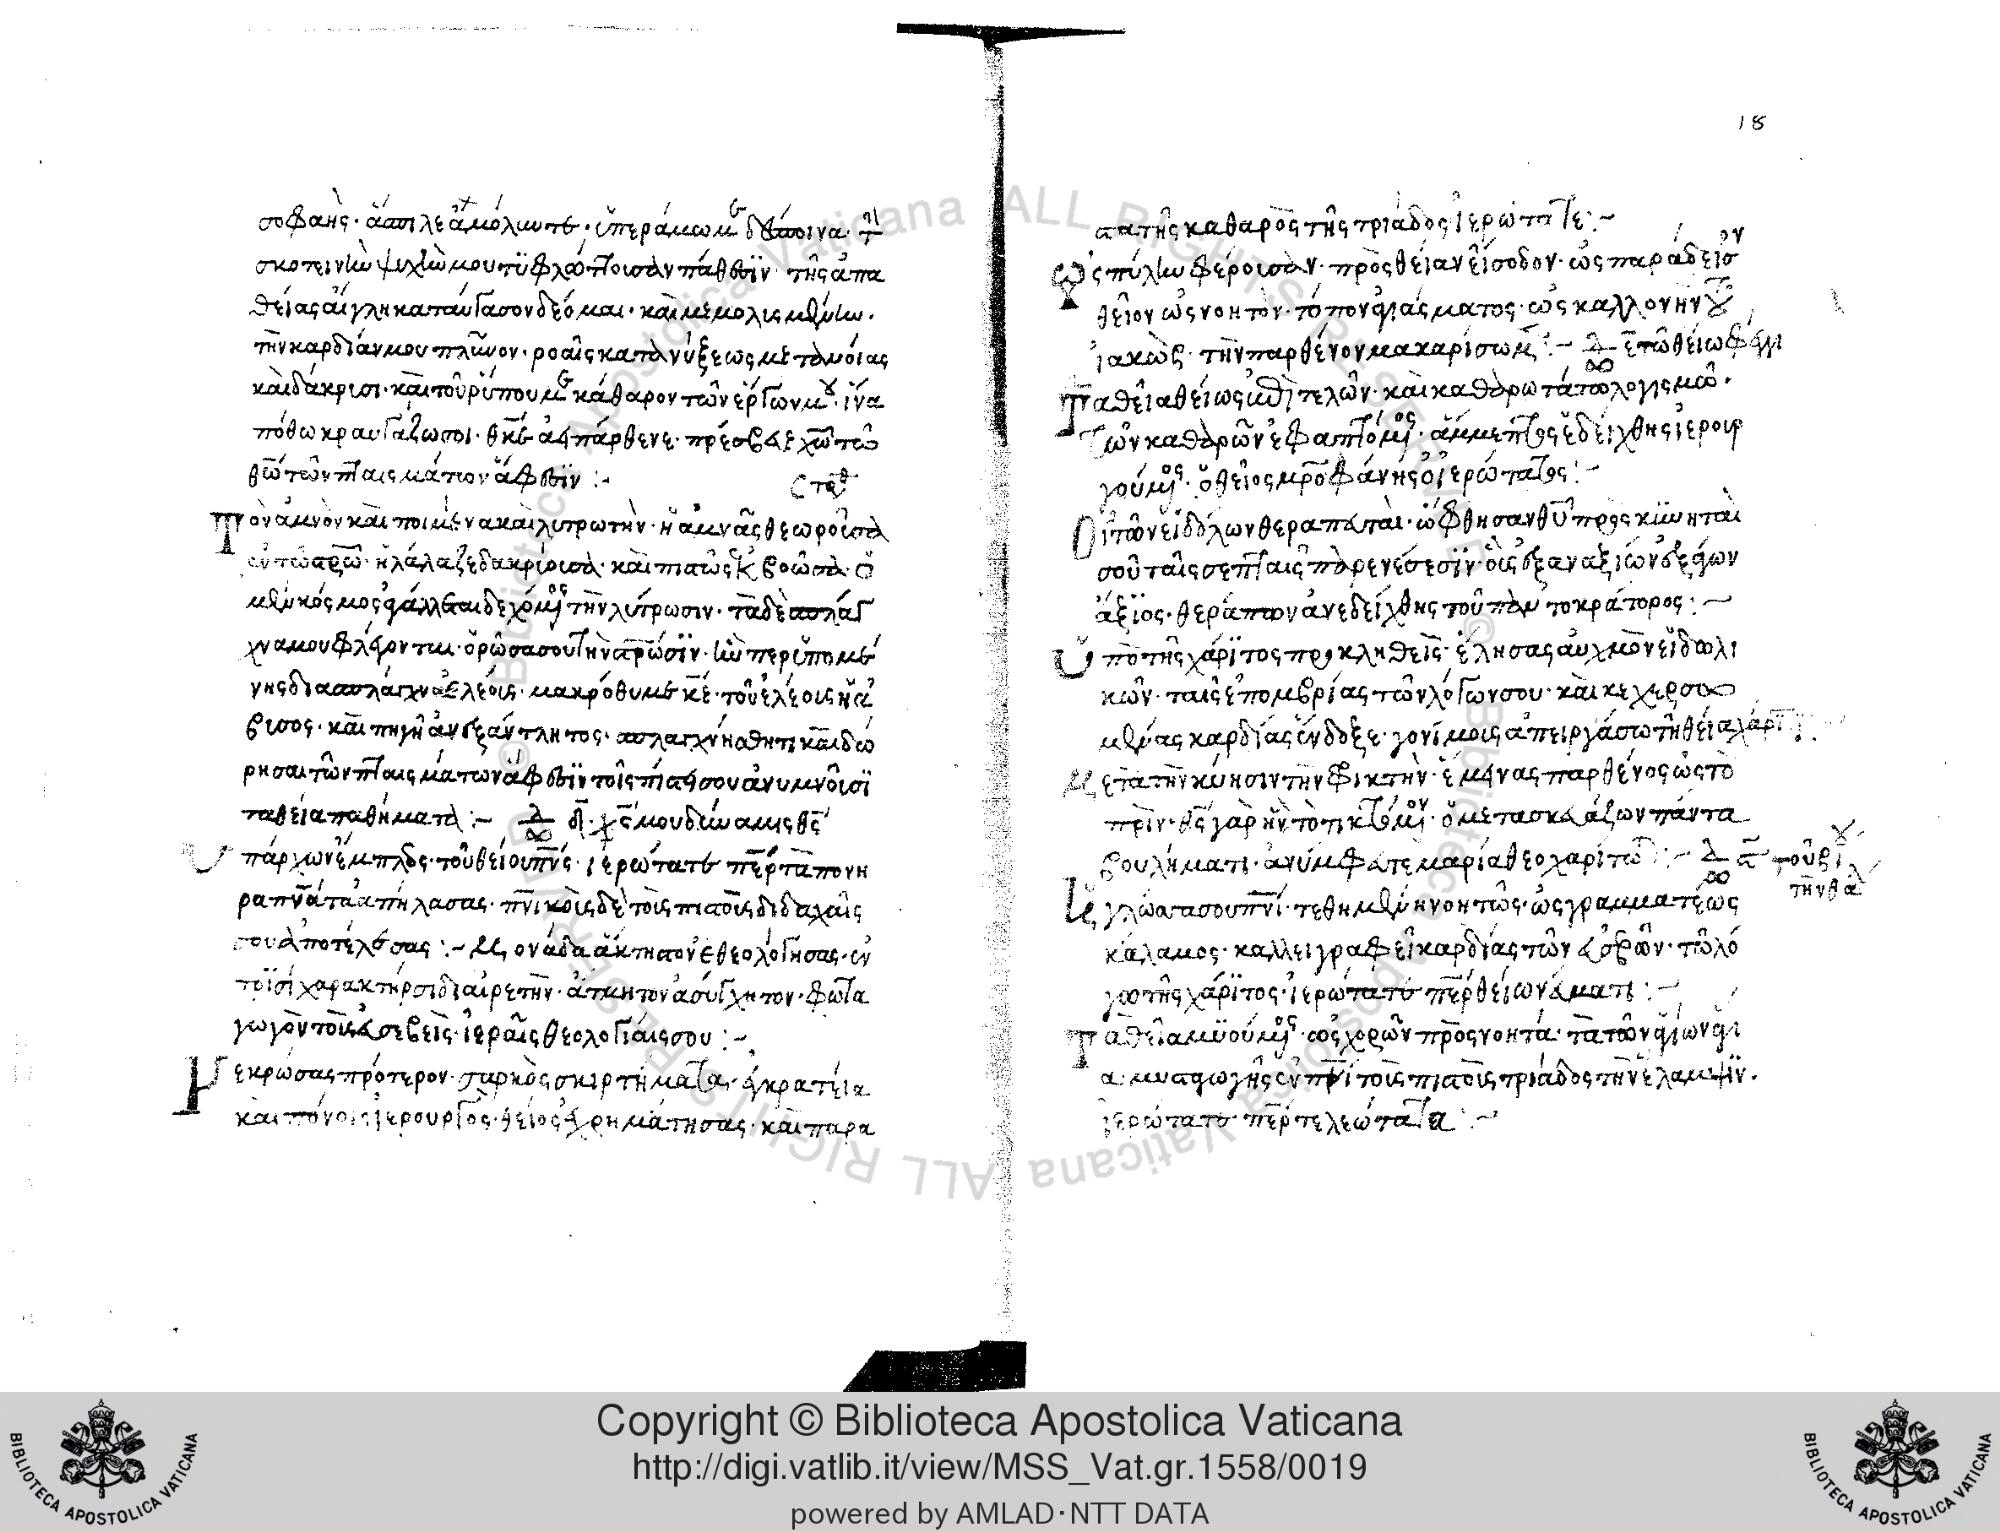 σοφαὴς· ἄσπιλε ἀμόλυντε· ὑπεράμωμε δέσποινα· τὴν
σκοτεινὴν ψυχήν μου τυφλώττουσαν πάθεσιν· τῆς ἀπα
θείας αἴγλη καταύγασον δέομαι· καὶ μεμολυσμένην·
τὴν καρδίαν μου πλῦνον· ροαῖς κατανύξεως μετανοίας
καὶ δάκρυσι· καὶ τοῦ ρύπου με κάθαρον τῶν ἔργων μου· ἵνα
πόθω κραυγάζω σοι· θκε ἀειπάρθενε· πρέσβευε χω τῶ
θω τῶν πταισμάτων ἄφεσιν :-
Τὸν ἀμνὸν καὶ ποιμένα καὶ λυτρωτὴν· ἡ ἀμνὰς θεωροῦσα
ἐν τῶ στρω· ἠλάλαζε δακρύουσα· καὶ πικρῶς ἐκβοῶσα· ὁ
μὲν κόσμος ἀγάλλεται δεχόμενος τὴν λύτρωσιν· τὰ δὲ σπλάγ
χνα μου φλέγονται· ὁρῶσα σου τὴν στρωσιν· ἣν περ ὑπομέ
νης διὰ σπλάγχνα ἐλέους· μακρόθυμε κε· τοῦ ἐλέους ἡ ἄ
βυσσος· καὶ πηγὴ ἀνεξάντλητος· σπλαγχνίσθητι καὶ δώ
ρησαι τῶν πταισμάτων ἄφεσιν τοῖς πίστει σου ἀνυμνοῦσι
τὰ θεία παθήματα :- ᾠδ η· χς μου δύναμις θς
Ὑπάρχων ἔμπλεος· τοῦ θείου πνς· ἱερώτατε περ τὰ πονη
ρὰ πνατα ἀπήλασας· πνικοῖς δὲ τοὺς πιστοὺς διδαχαῖς
σου ἀποτέλεσας :- Μονάδα ἄκτιστον ἐθεολόγησας· ἐν
τρισὶ χαρακτήρσι διαιρετὴν· ἄτμητον ἀσύγχητον· φωτα
γωγὸν τοὺς εὐσεβεῖς· ἱεραῖς θεολογίαις σου :-
Νεκρώσας πρότερον· σαρκὸς σκιρτήματα· ἐγκρατεία
καὶ πόνοις ἱερουργὸς· θεῖος ἐχρημάτησας· καὶ παρα
18
στάτης καθαρὸς τῆς τριάδος ἱερώτατε :-
Ὡς πύλην φέρουσαν· πρὸς θείαν εἴσοδον· ὡς παράδεισον
θεῖον ὡς νοητὸν· τόπον ἁγιάσματος· ὡς καλλονὴν τοῦ
ἰακὼβ· τὴν παρθένον μακαρίσωμεν :- ᾠδ ε τῶ θείω φέγγει
Τὰ θεῖα θείως ἐκτελῶν· καὶ καθαρωτάτω λογισμῶ·
τῶν καθαρῶν ἐφαπτόμενος· ἄμεμπτος ἐδείχθης ἱερουρ
γούμενος· ὁ θεῖος μροφάνης ὁ ἱερώτατος :-
Οἱ τῶν εἰδώλων θεραπευταὶ· ὤφθησαν θυ προσκυνηταὶ
σοῦ ταῖς σεπταῖς παρενέσεσιν· οὓς ἐξ ἀναξίων ἐξάγων
ἄξιος· θεράπων ἀνεδείχθης τοῦ παντοκράτορος :-
Ὑπὸ τῆς χάριτος προκληθεὶς· ἔλησας αὐχμὸν εἰδωλι
κῶν· ταῖς ἐπομβρίας τῶν λόγων σου· καὶ κεχερσω
μένας καρδίας ἔνδοξε· γονίμους ἀπειργάσω τῆ θεία χάριτι
Μετὰ τὴν κύησιν τὴν φρικτὴν· ἔμεινας παρθένος ὡς τὸ
πρὶν· θς γὰρ ἦν τὸ τικτόμενον· ὁ μετασκευάζων πάντα
βουλήματι· ἀνύμφευτε μαρία θεοχαρίτωτε :- ᾠδ ς τοῦ βίου
τὴν θάλ
Ἡ γλῶσσα σου πνι· τεθημένη νοητῶς· ὡς γραμματέως
κάλαμος· καλλειγραφεῖ καρδίας τῶν εὐσεβῶν· τῶ λό
γω τῆς χάριτος· ἱερώτατε περ θείω νεύματι :-
Τὰ θεῖα μυούμενος· ὡς χωρῶν πρὸς νοητὰ· τὰ τῶν ἁγίων ἅγι
α· μυσταγωγῆς ἐν πνι τοῖς πιστοῖς τριάδος τὴν ἔλαμψιν·
ἱερώτατε περ τελεώτατα :-